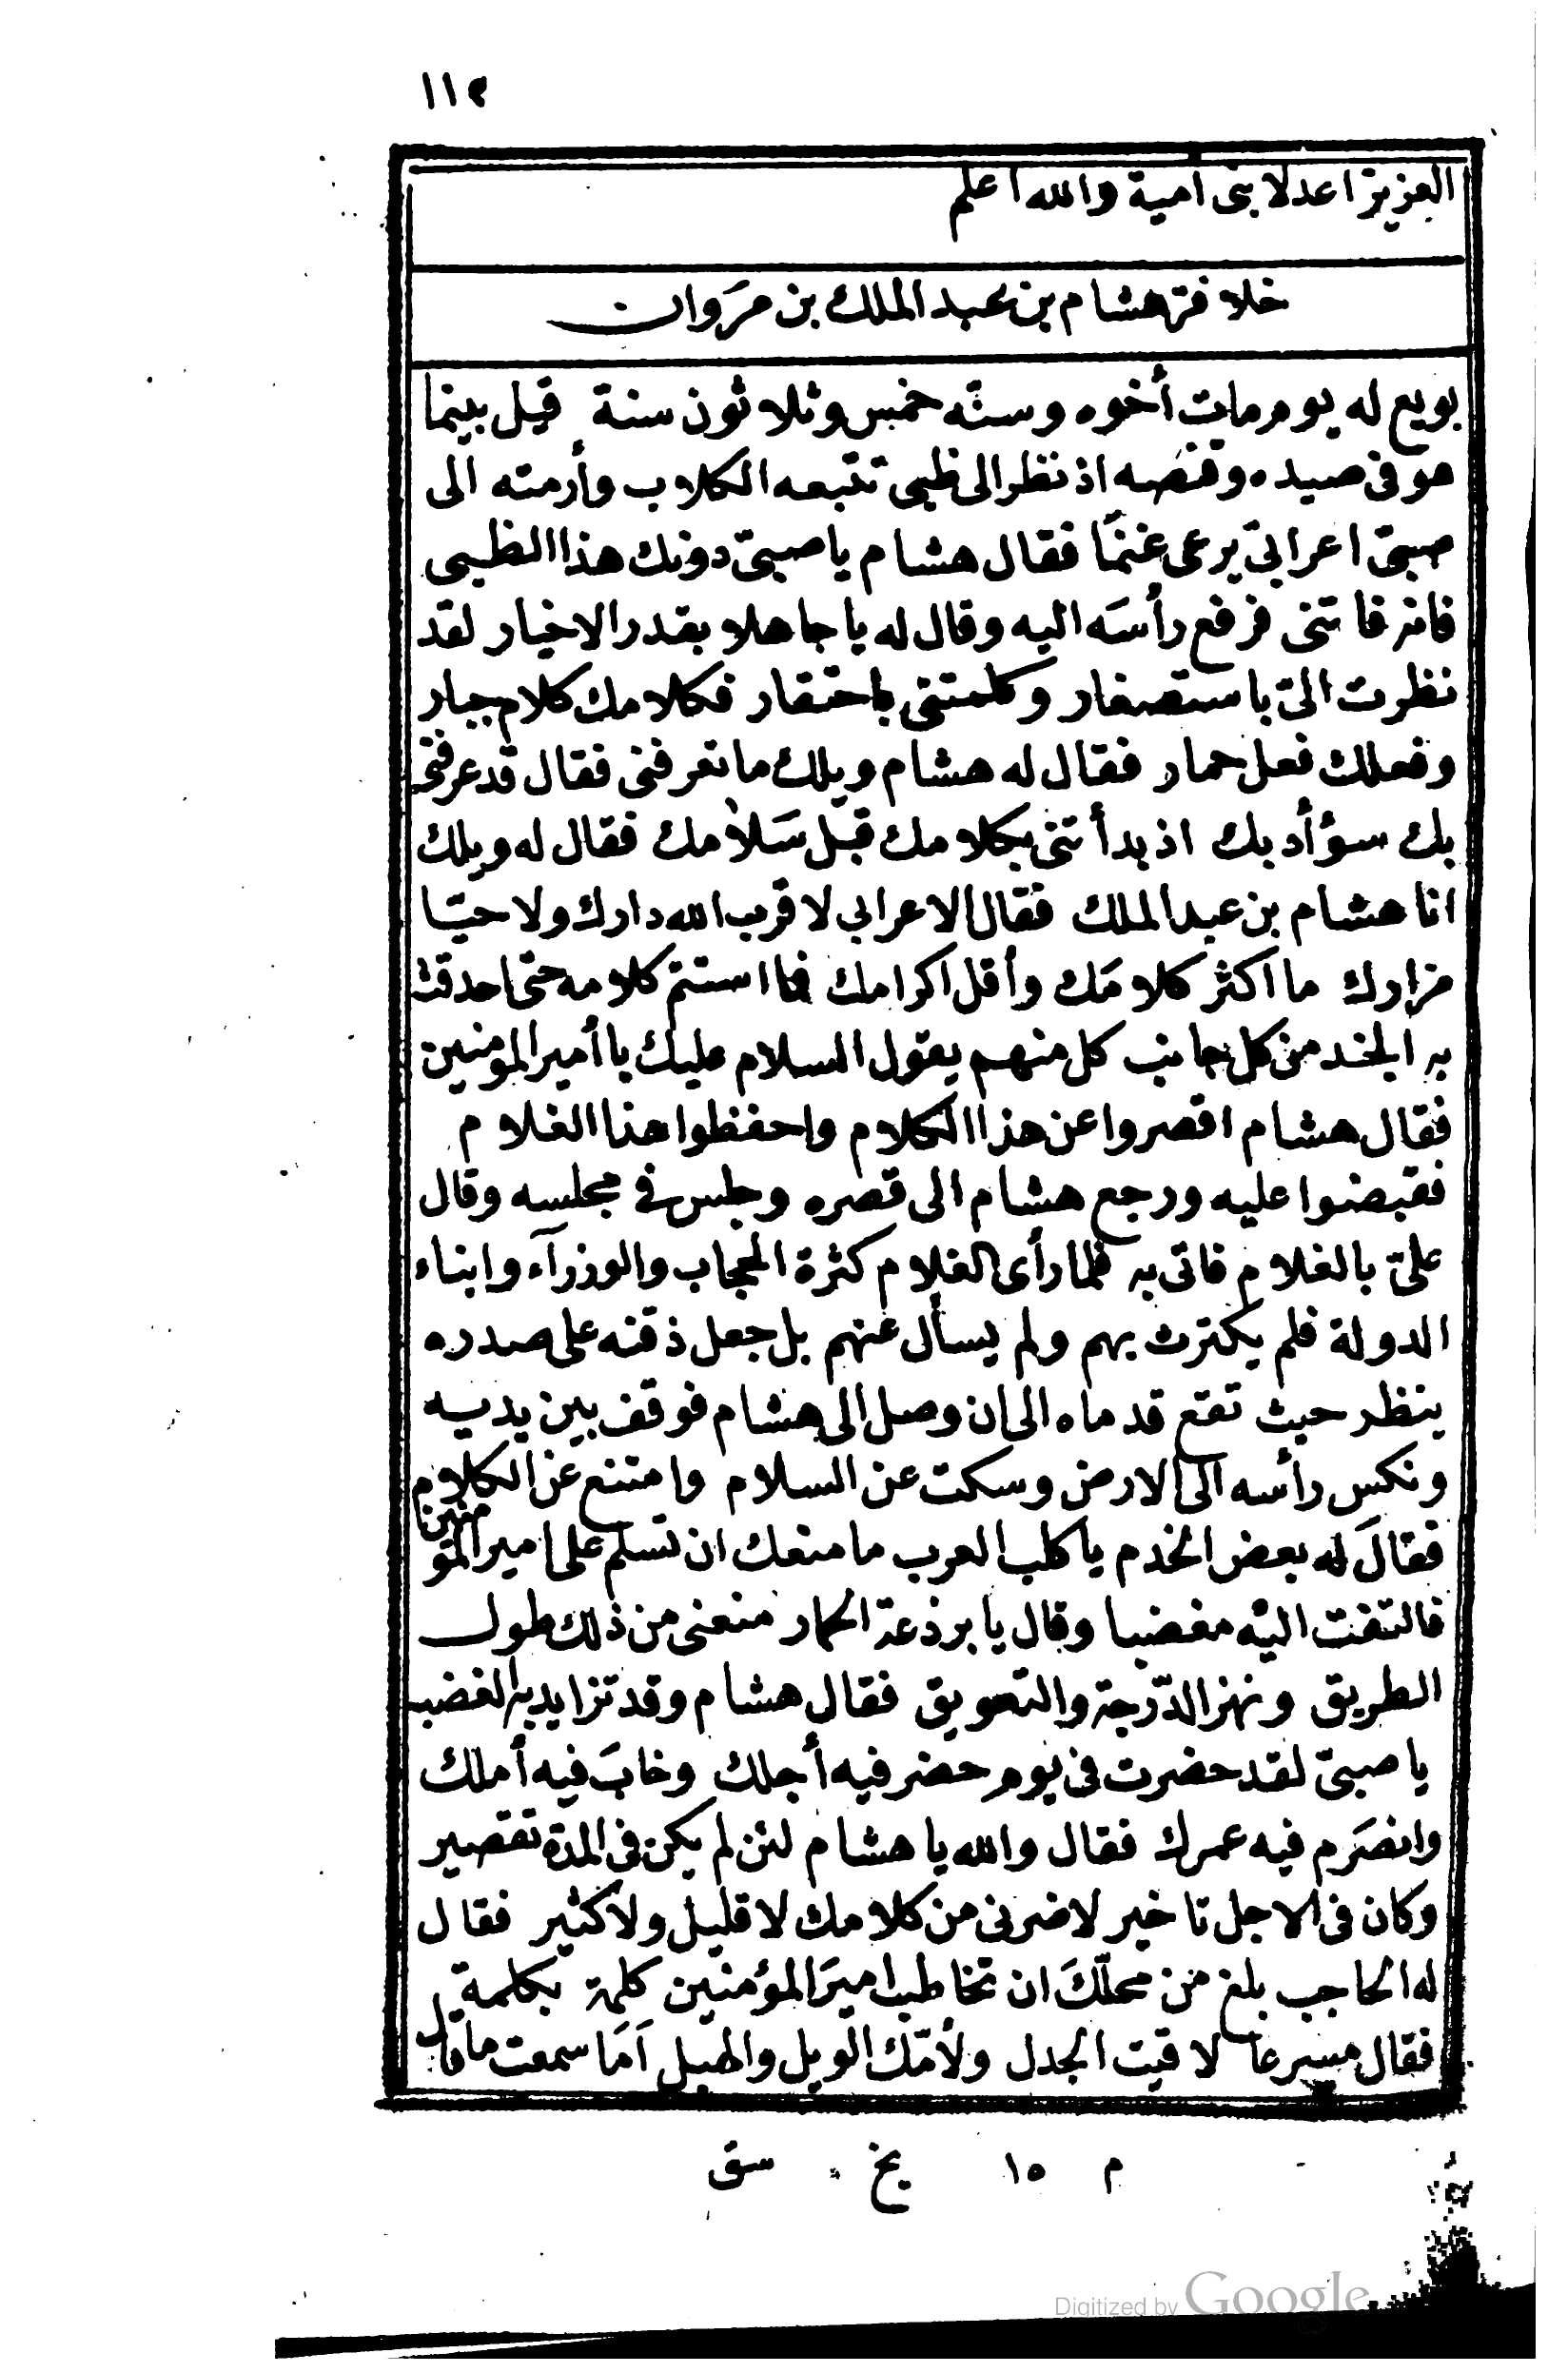 ١١٣
العزيز اعدلا بنى امية والله اعلم
خلافة هشام بن عبد الملك بن مروان
بويع له يوم مات أخوه وسنّه خمس وثلاثون سنة قيل بينما
هو فى صيده وقنصه اذ نظر الى ظبى تتبعه الكلاب وأرمته الى
صبىّ اعرابىّ يرعى غنمًا فقال هشام يا صبىّ دونك هذا الظبى
فانه فاتنى فرفع رأسَه اليه وقال له يا جاهلا بقدر الاخيار لقد
نظرت الىّ باستصغار وكلمتنى باحتقار فكلامك كلام جبار
وفعلك فعل حمار فقال له هشام ويلك ما تعرفنى فقال قد عرفنى
بك سؤ أدبك اذ بدأتنى بكلامك قبل سَلامك فقال له ويلك
انا هشام بن عبد الملك فقال الاعرابي لا قرب الله دارك ولا حيّا
مزارك ما اكثر كلامَك وأقل اكرامك فما استتم كلامه حتى احدقت
به الجند من كل جانب كل منهم يقول السلام عليك يا أمير المومنين
فقال هشام اقصروا عن هذا الكلام واحفظوا هذا الغلام
فقبضوا عليه ورجع هشام الى قصره وجلس فى مجلسه وقال
علىّ بالغلام فاتى به فلما رأى الغلام كثرة الحجاب والوزرآء وابناء
الدولة فلم يكترث بهم ولم يسأل عنهم بل جعل ذقنه على صدره
ينظر حيث تقع قدماه الى ان وصل الى هشام فوقف بين يديه
ونكس رأسه الى الارض وسكت عن السلام وامتنع عن الكلام
فقالَ له بعض الخدم يا كلب العرب ما منعك ان تسلم على امير المومنين
فالتفت اليه مغضبا وقال يا برذعة الحمار منعنى من ذلك طول
الطريق ونهز الدّرجة والتعويق فقال هشام وقد تزايد به الغضب
يا صبىّ لقد حضرت فى يوم حضر فيه أجلك وخابَ فيه أملك
وانصَرَم فيه عمرك فقال والله يا هشام لئن لم يكن فى المدة تقصير
وكان فى الاجل تاخير لا ضرنى من كلامك لا قليل ولا كثير فقال
له الحاجب بلغ من محلّكَ ان تخاطب اميرَ المؤمنين كلمة بكلمة
فقال مسرعا لا قيت الجدل ولأمّك الويل والهبل اَمَا سمعت ما قال
م ١٥ يخ سق
Digitized by Google